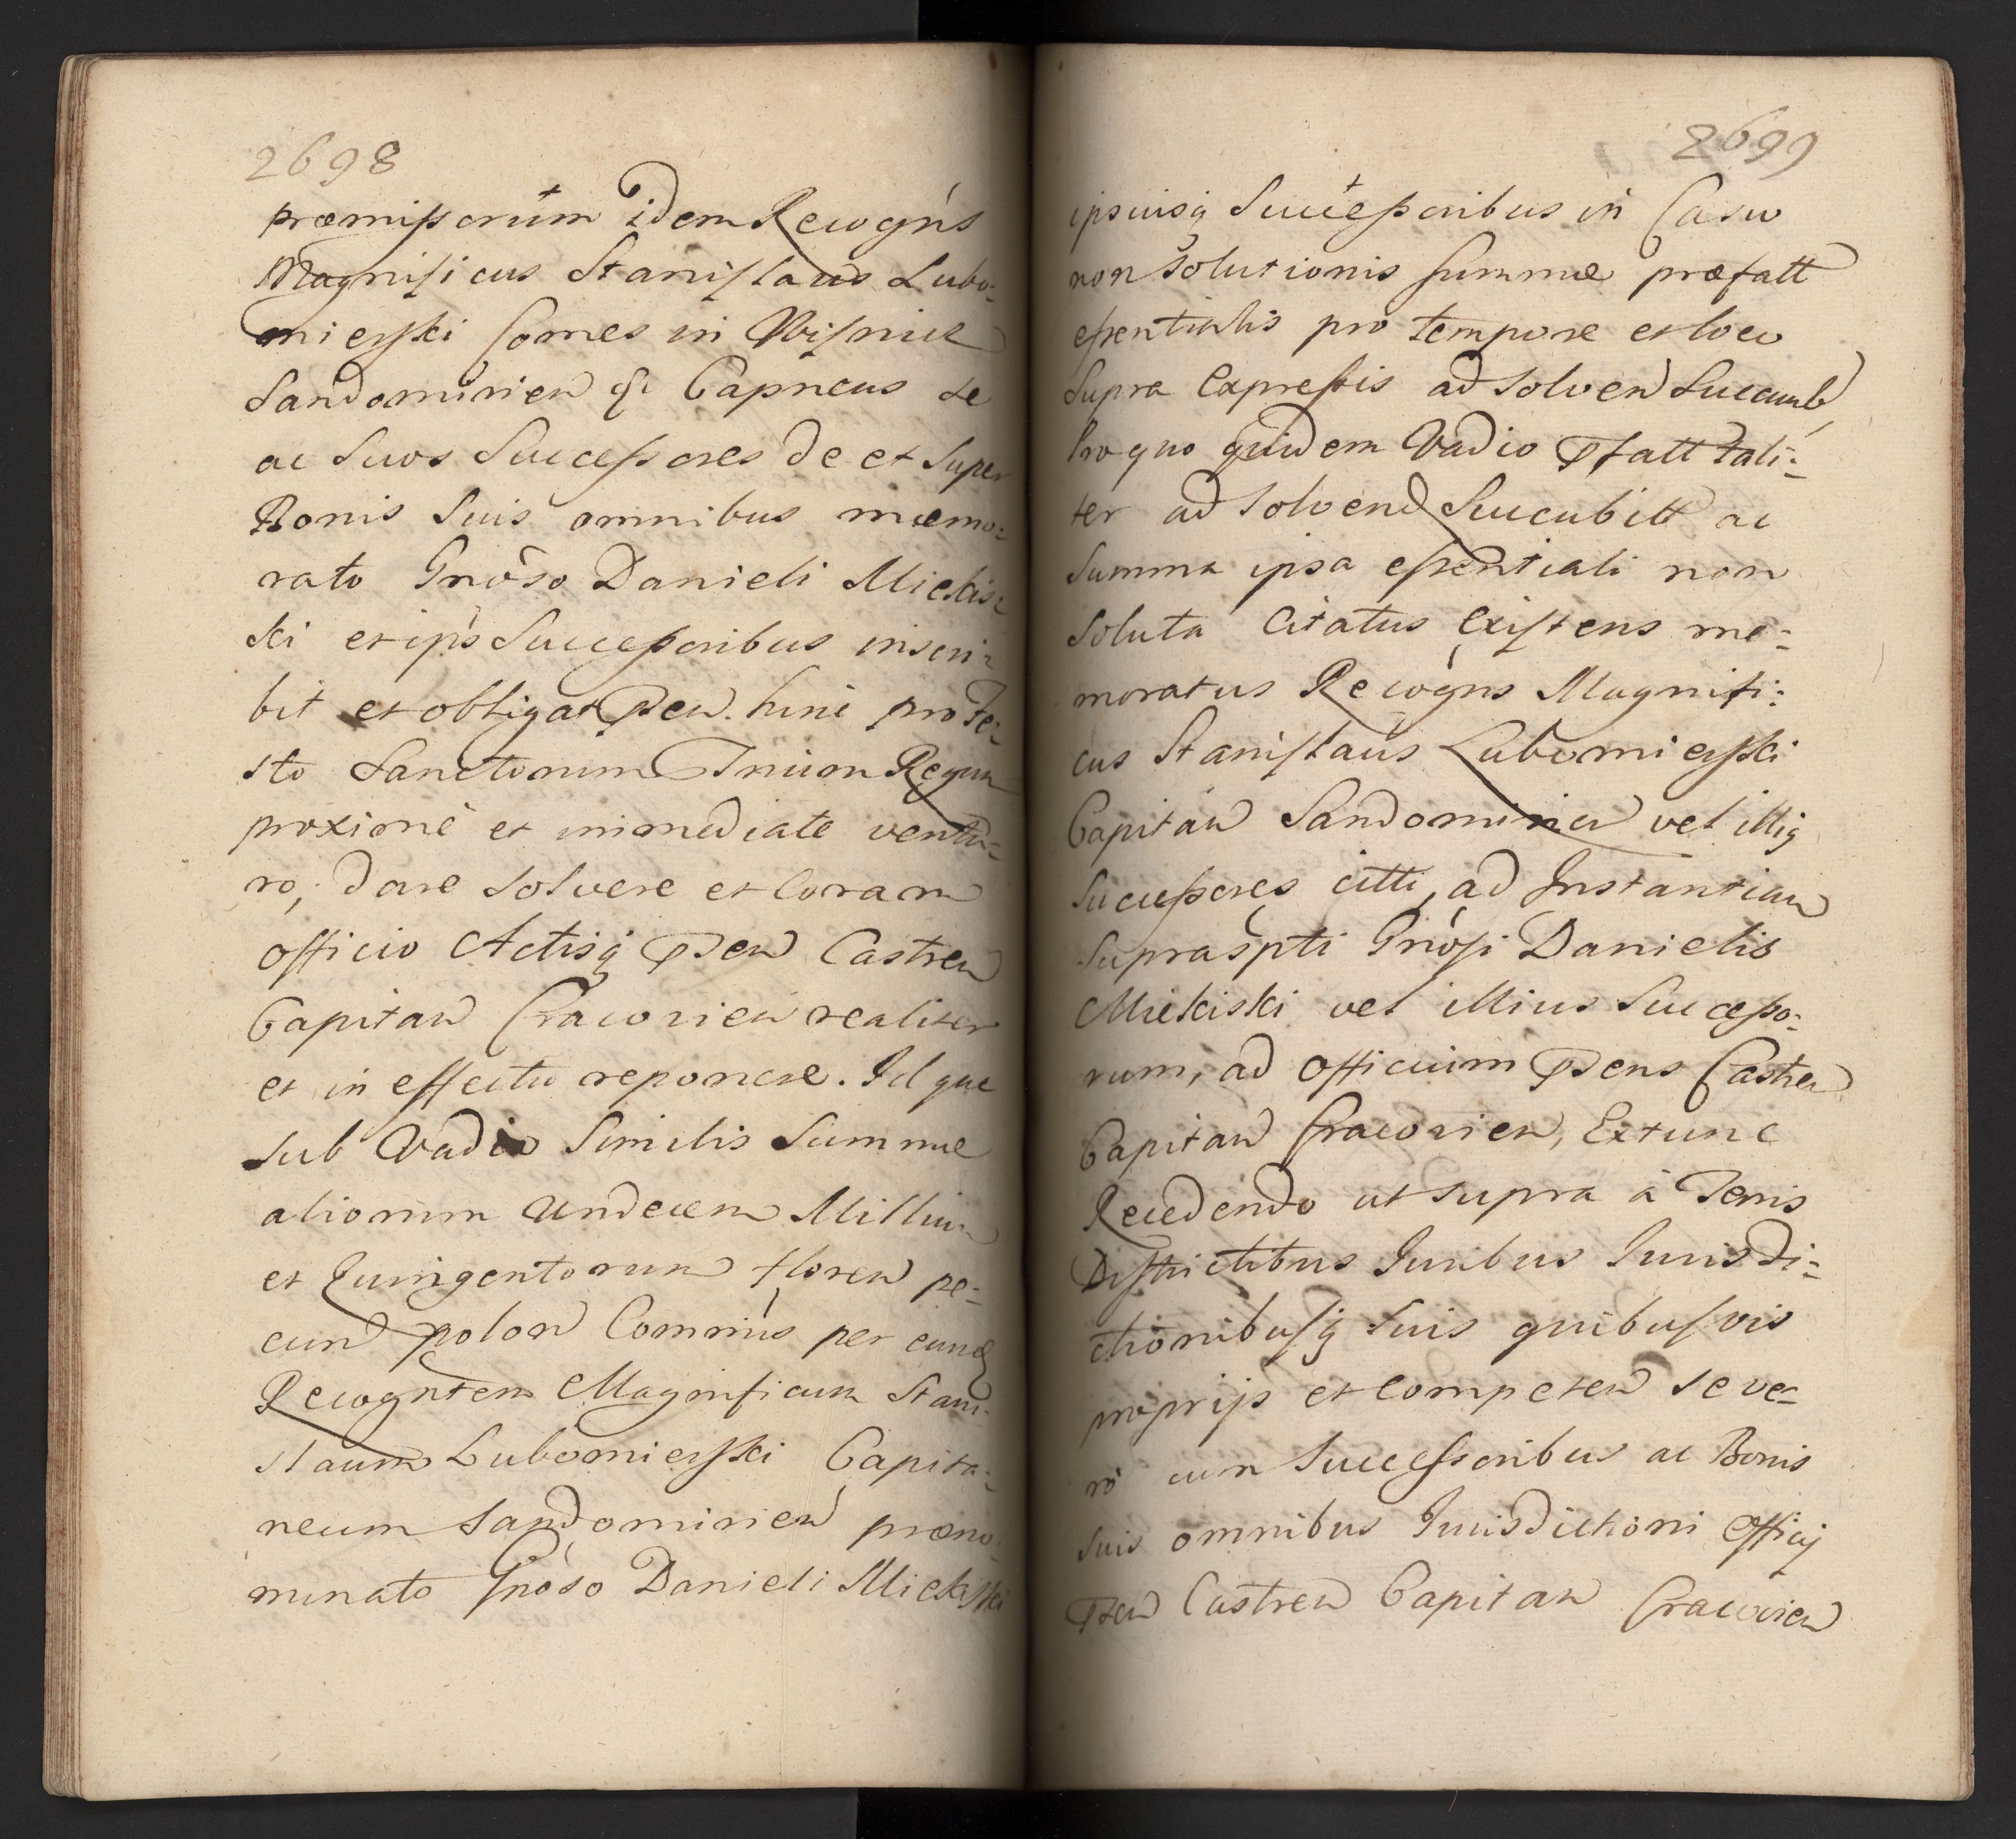 2698
præmissorúm idem Recogńs
Magnificus Stanislaus Lubo:
mierski Comes in Wisnicz
Sandomirien &c Capneus se
ac suos Successores de et super
Bonis Suis omnibus mæmo:
rato Gnoso Danieli Miekis:
ki et ips Successoribus inscri:
bit et obligat pśen. hinc pro Fe:
sto Sanctorum Trium Regum
proximè et immediate ventu:
ro, dare solvere et Coram
officio Actisq pśen Castren
Capitan Cracovien realiter
et in effectu reponere. Idque
sub Vadio Similis Summæ
aliorum Undecem Millium
et Quingentorum floren pe:
cun polon Commúis per eund
Recogntem Magnificum Stani:
slaum Lubomierski Capita:
neum Sandomirien præno:
minato Gnoso Danieli Miekiski
2699
ipsiusq Successoribus in Casu
non Solutionis summæ præfatt
essentialis pro tempore et loco
supra Expressis ad solven Succumb
Pro quo quidem Vadio pfatt tali:
ter ad Solvend Succubitt ac
Summa ipsa essentiali non
Soluta Citatus Existens me:
moratus Recogns Magnifi:
cus Stanislaús Lubomierski
Capitán Sandomirien vel illiq
Successores citti, ad Instantiam
Supraspti Gnosi Danielis
Miekiski vel illius Successo:
rum, ad Officium pśens Castren
Capitan Cracovien, Extunc
Recedendo ut supra à Terris
Districtibus Iuribus Iurisdi:
ctionibusq Suis quibusvis
proprijs et Competen se ve:
rò cum Successoribus ac Bonis
suis omnibus Iurisdictioni Officij
pśen Castren Capitan Cracovien